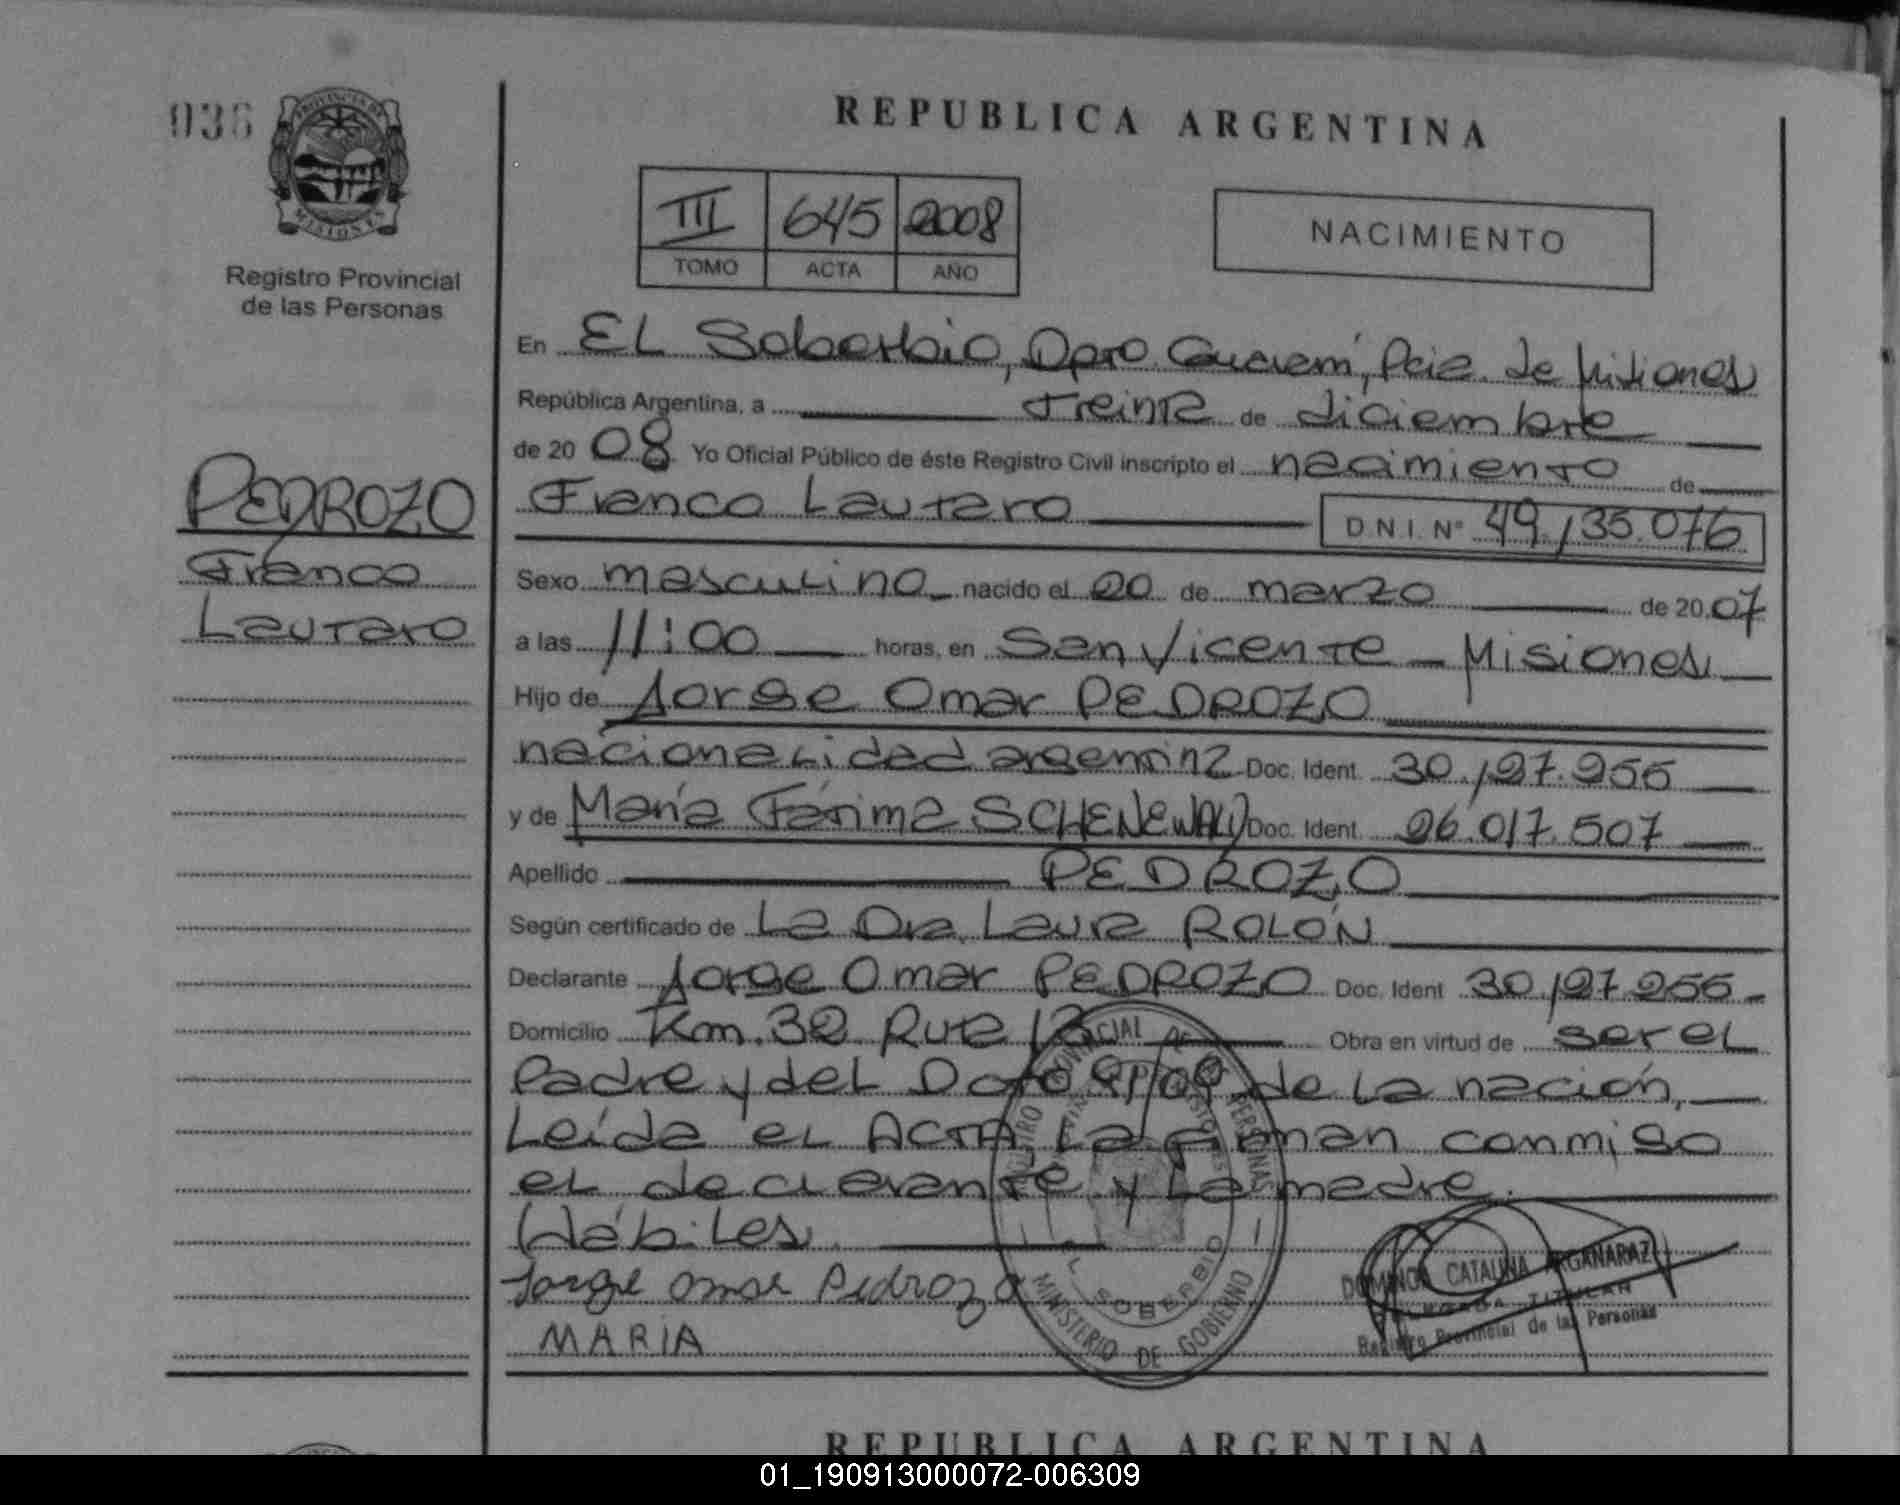 036
PROVINCIA DE
MISIONES
Registro Provincial
de las Personas
PEDROZO
Franco
Lautaro
REPUBLICA ARGENTINA
III 645 2008
TOMO ACTA AÑO
NACIMIENTO
En EL Soberbio, Dpto. Guaraní, Pcia. de Misiones
República Argentina, a treinta de diciembre
de 2008 Yo Oficial Público de éste Registro Civil inscripto el nacimiento de
Franco Lautaro D.N.I. Nº 49.135.076
Sexo masculino nacido el 20 de marzo de 2007
a las 11:00 horas, en San Vicente - Misiones
Hijo de Jorge Omar PEDROZO
nacionalidad argentina Doc. Ident. 30.127.255
y de María Fátima SCHENEWALD Doc. Ident. 26.017.507
Apellido PEDROZO
Según certificado de La Dra. Laura ROLÓN
Declarante Jorge Omar PEDROZO Doc. Ident 30.127.255
Domicilio Km. 32 Ruta 13 Obra en virtud de ser el
Padre y del Dcto de la nación,
Leída el ACTA La firman conmigo
el declarante y La madre.
Hábiles.
Jorge Omar Pedrozo
MARIA
REGISTRO PROVINCIAL DE LAS PERSONAS
EL SOBERBIO
MINISTERIO DE GOBIERNO
CATALINA ARGANARAZ
TITULAR
Registro Provincial de las Personas
REPUBLICA ARGENTINA
01_190913000072-006309